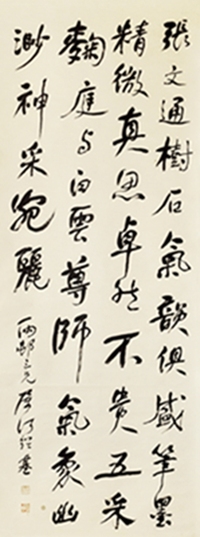 張文通樹石氣韻俱盛筆墨
精微真思卓然不貴五采
麴庭与白雲尊師氣象幽
渺神采宛麗
邨三兄屬何紹基